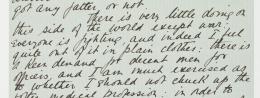 got any fatter, or not.
There is very little doing on
this side of the world except war:
everyone is fighting, and indeed I feel
quite out of it in plain clothes: there is
a keen demand for decent men for
officers, and I am much exercised as
to whether I should not chuck up the
medical profession: in order to